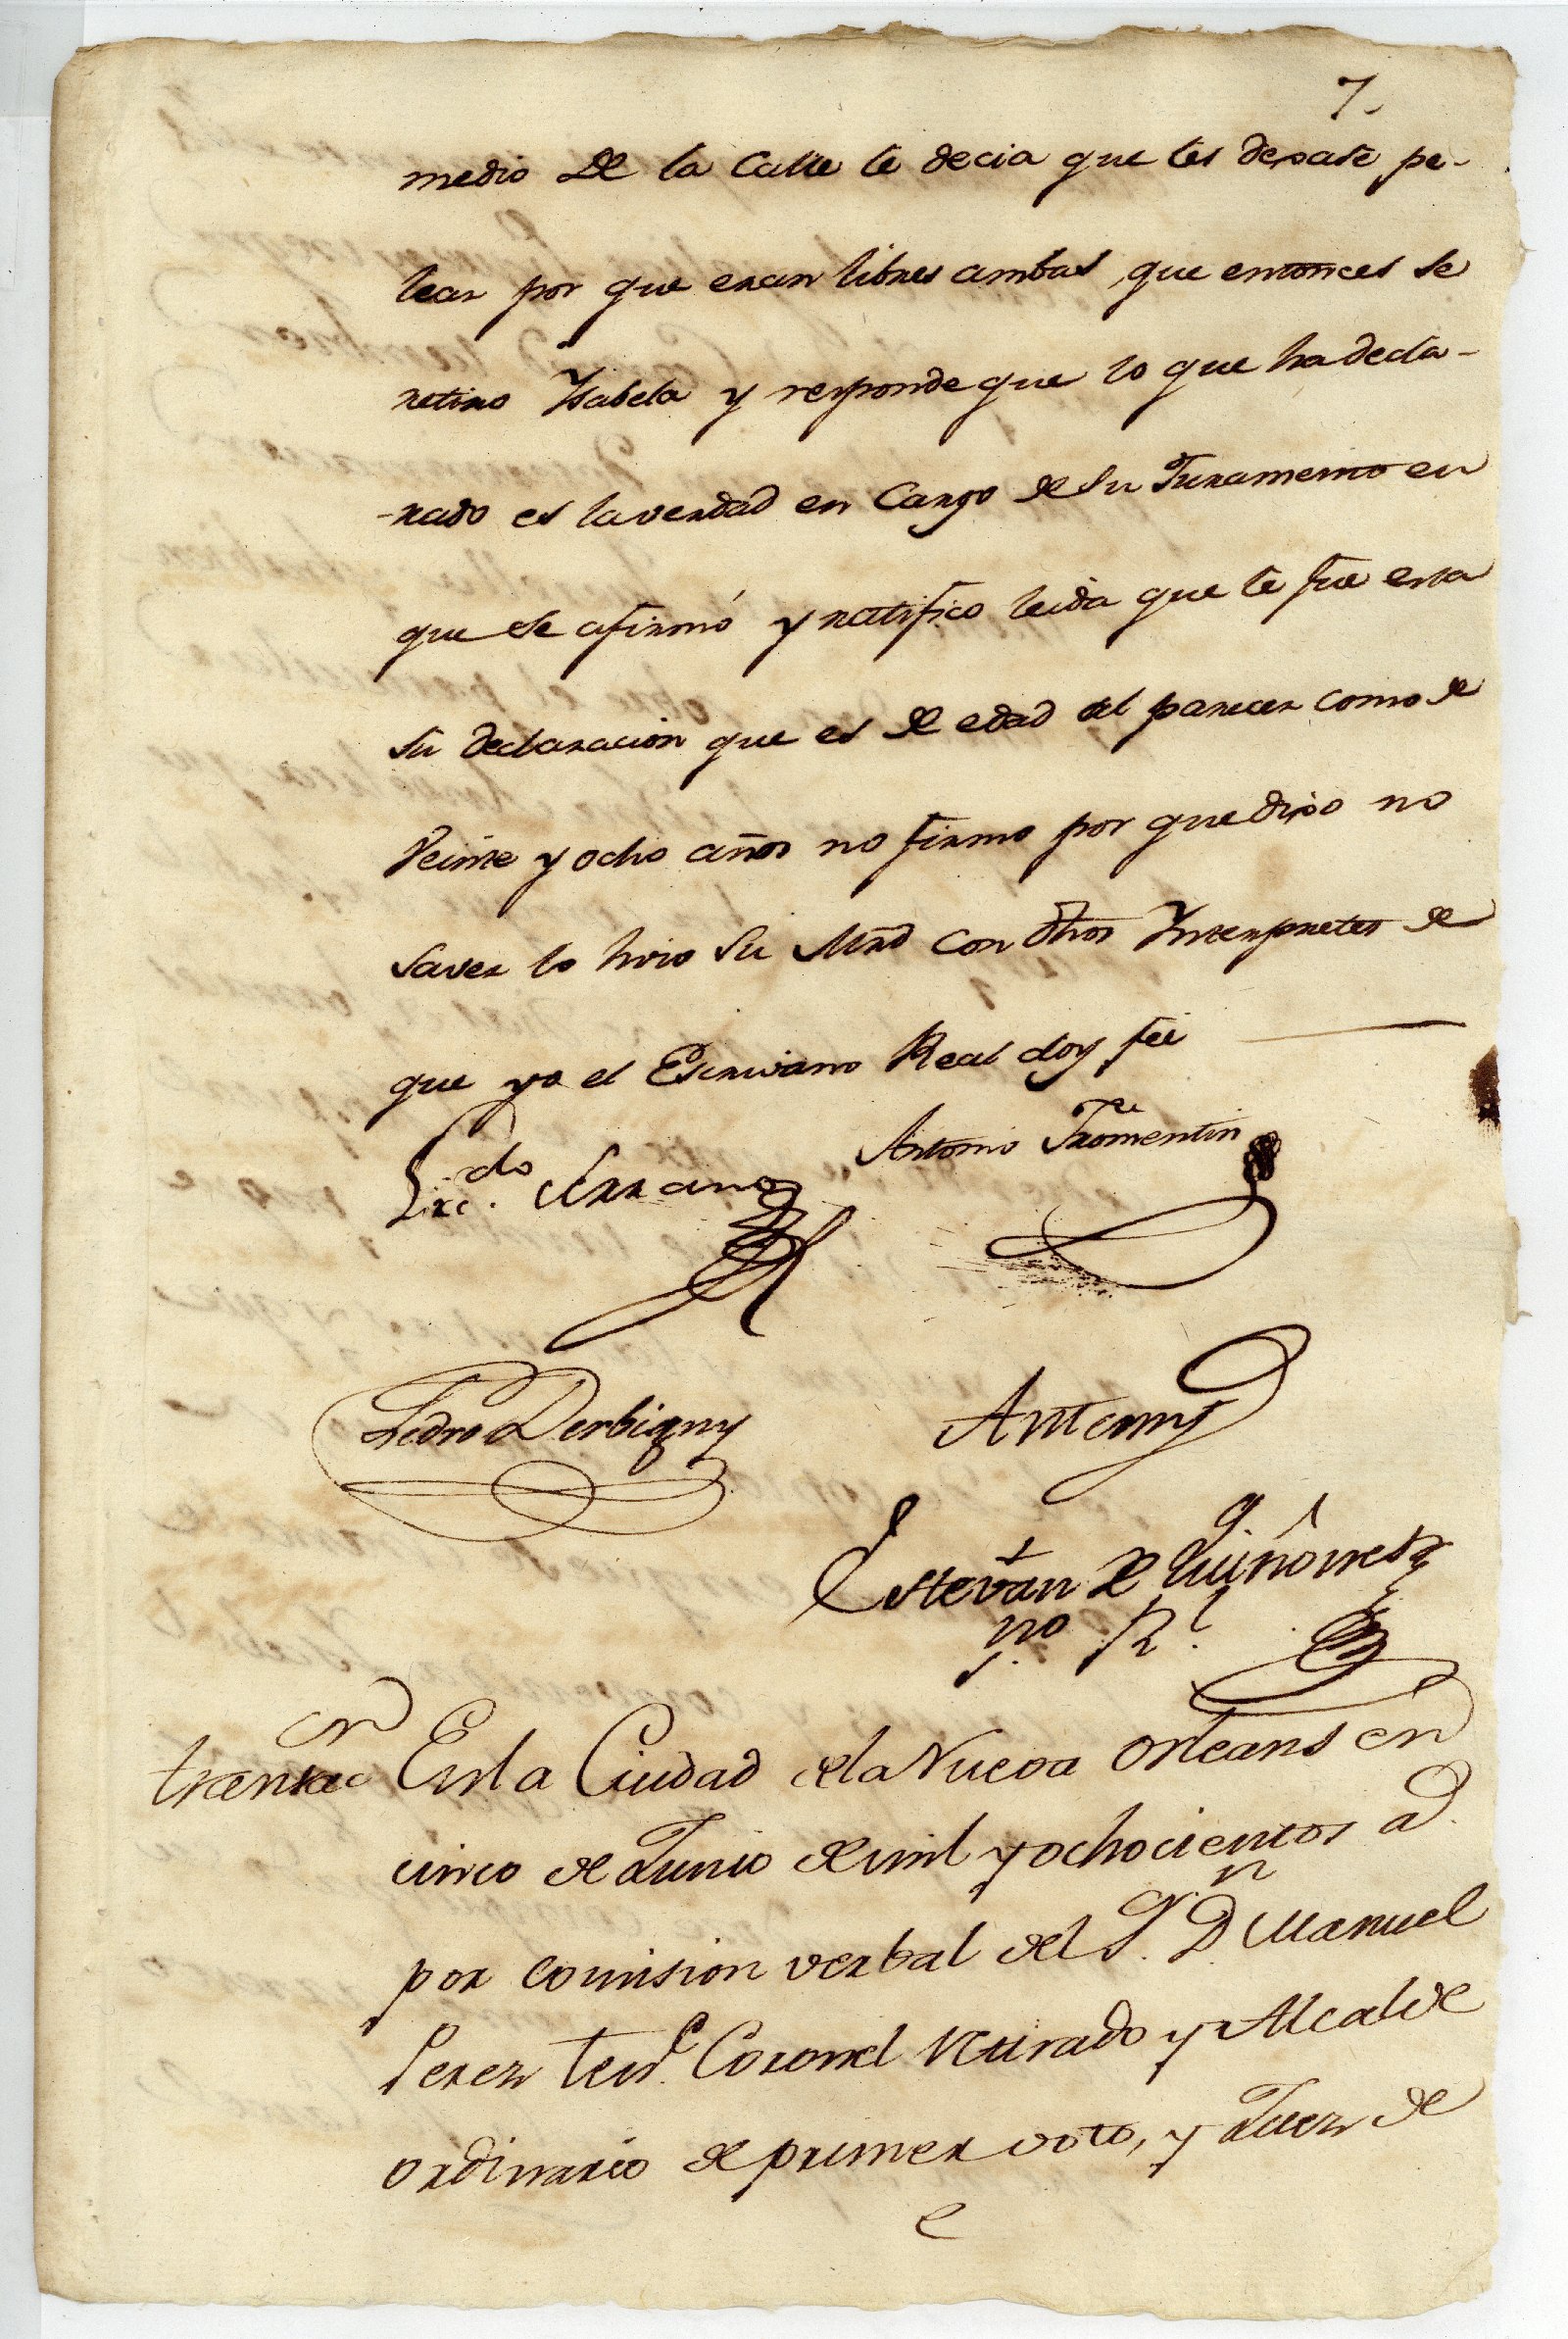 7.
medio de la Calle le decia que les dexase pe-
lear por que eran libres ambas, que entonces se
retiro Ysabela y responde que lo que ha decla-
-rado es la verdad en Cargo de su Juramento en
que se afirmó y ratifico leida que le fue esta
su declaracion que es de edad al parecer como de
Veinte y ocho años no firmo por que dixo no
saver lo hizo su Mrd con dhos Ynterpretes de
que yo el Escrivano Real doy feé
Licdo. Serrano
Antonio Fromentin
Pedro Derbigny
Antemy
Estevan de Quiñones
no. Rl.
En la Ciudad de la Nueva Orleans en
cinco de Junio de mil y ochocientos a.
por comision verbal del Sr. Dn Manuel
Perez tente. Coronel Retirado y Alcalde
Ordinario de primer voto, y Juez de